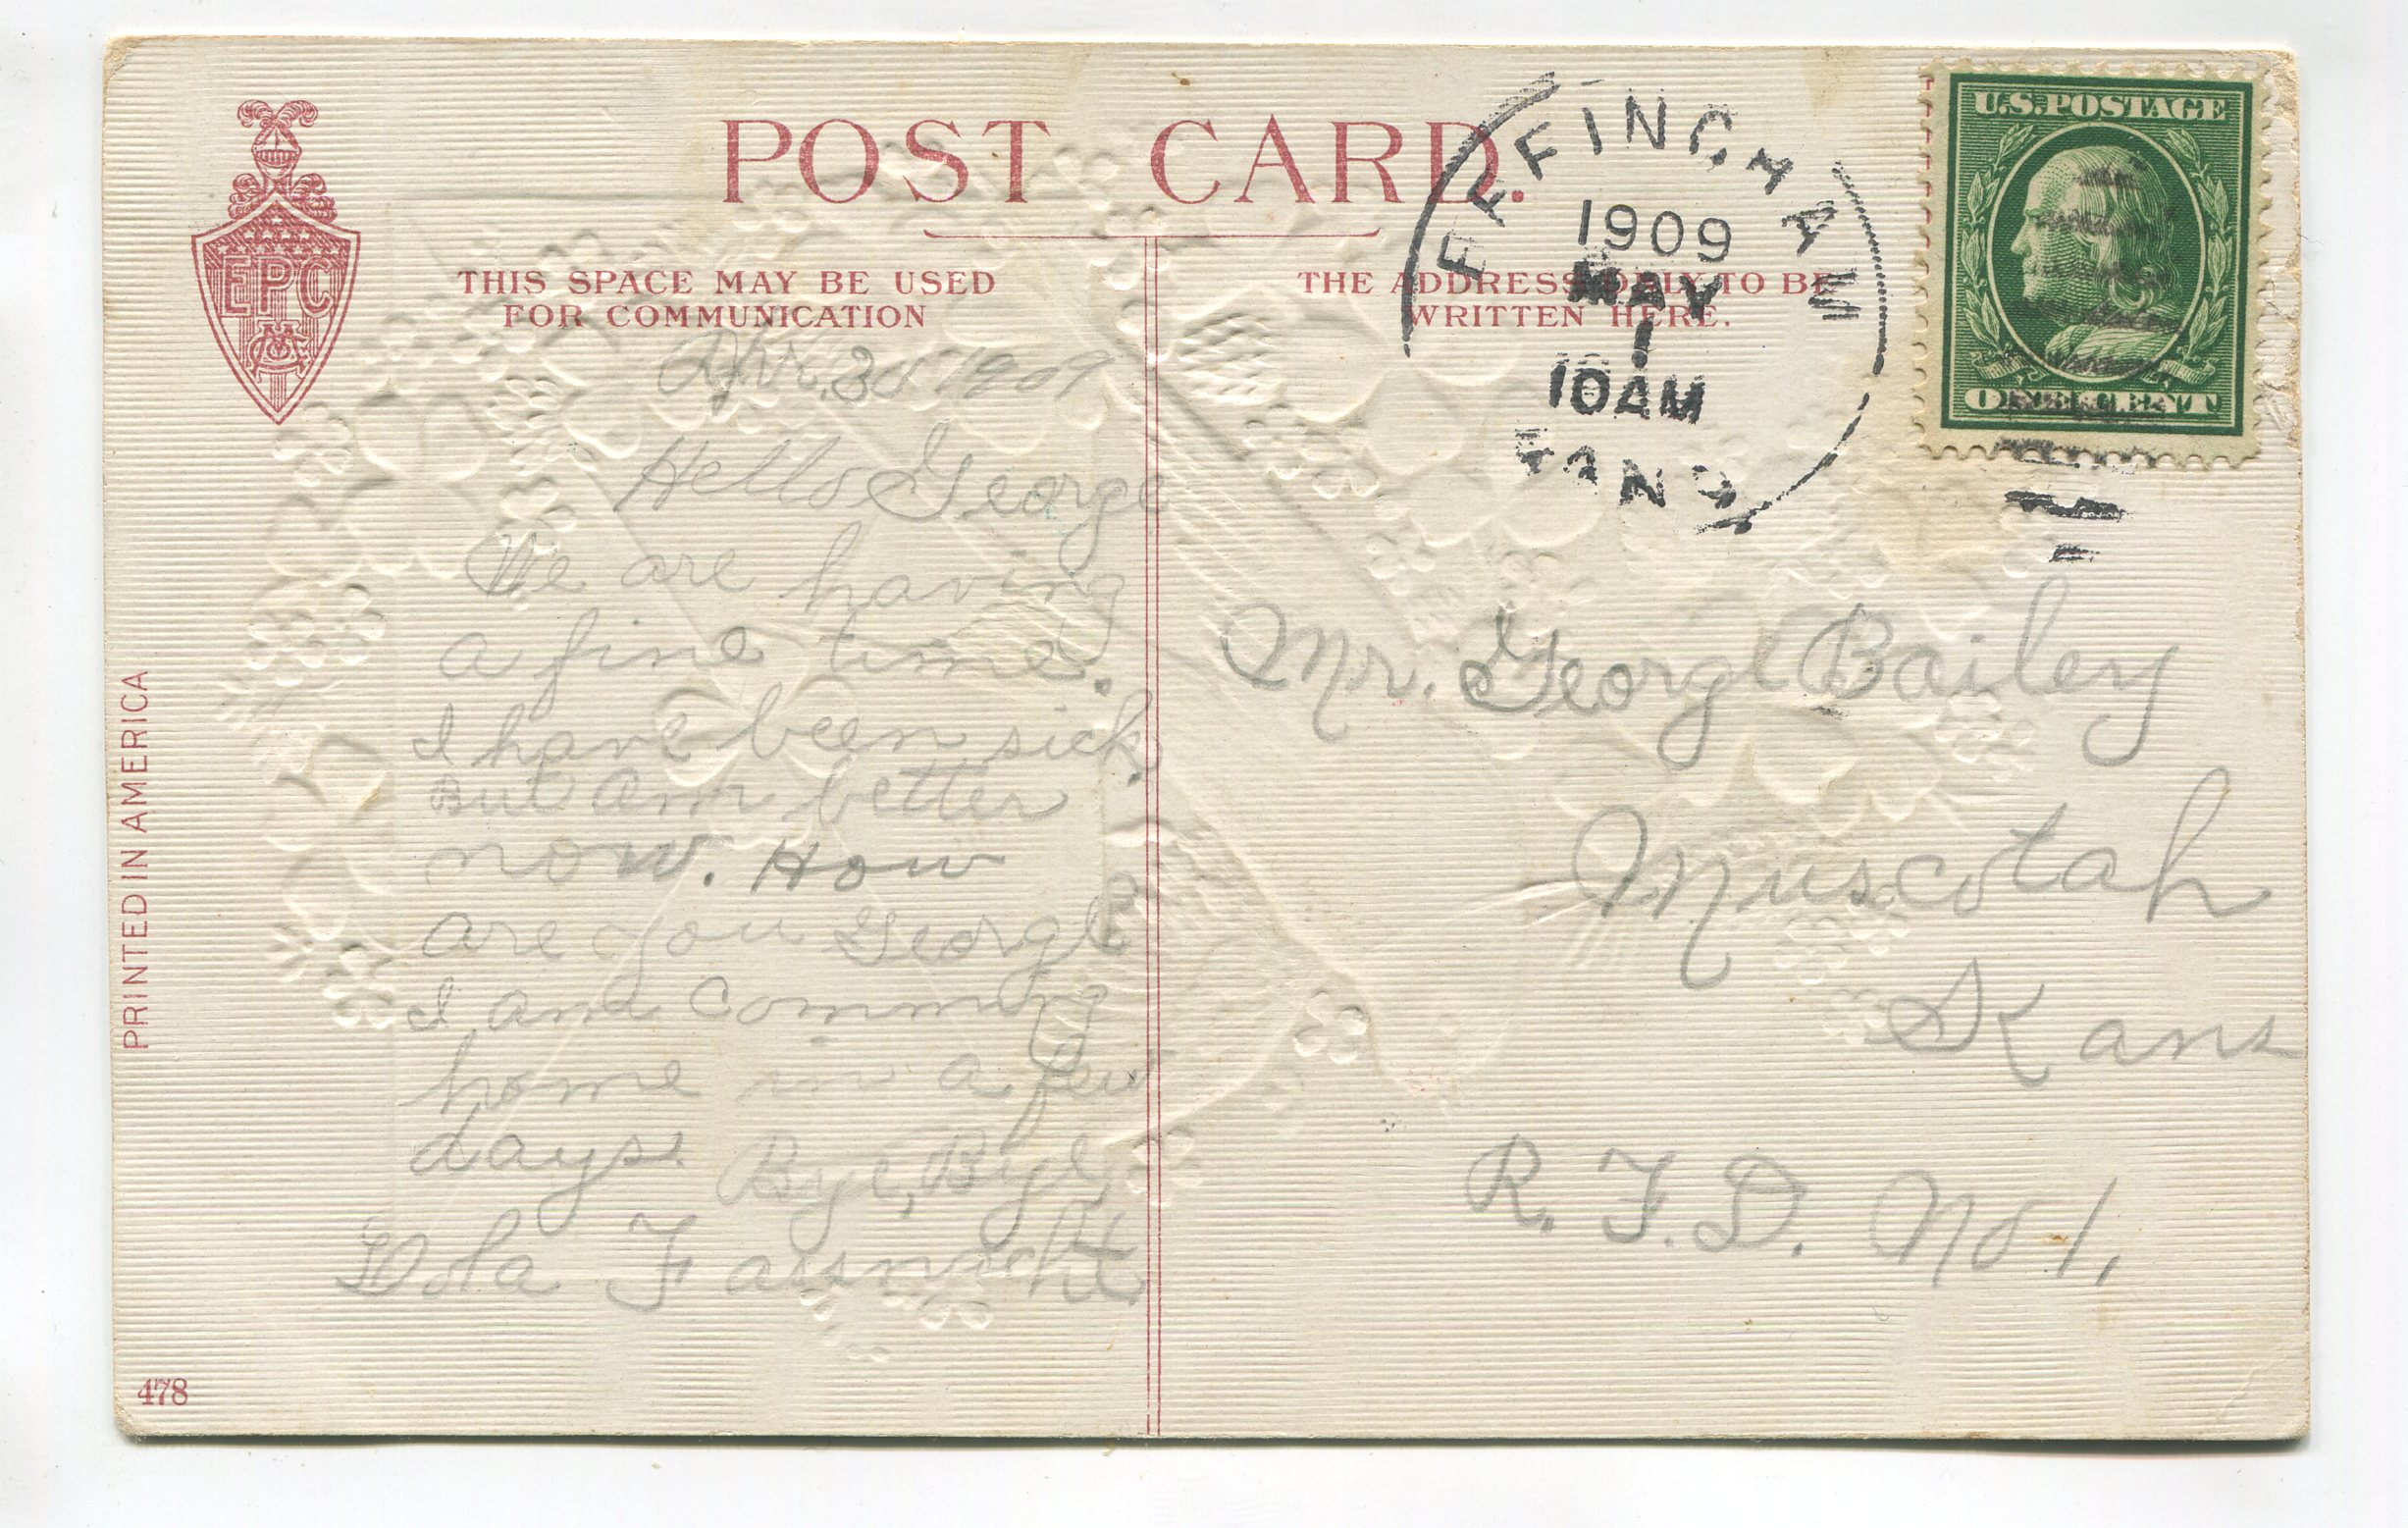 POST CARD.
EPC
THIS SPACE MAY BE USED
FOR COMMUNICATION
THE ADDRESS ONLY TO BE
WRITTEN HERE.
EFFINGHAM
1909
MAY
1
10AM
KANS
U.S. POSTAGE
ONE CENT
Apr. 30 1909
Hello George
We are having
a fine time.
I have been sick
But am better
now. How
are you George
I am comming
home in a few
days. Bye, Bye
Fassnacht
Mr. George Bailey
Muscotah
Kans
R.F.D. No 1,
PRINTED IN AMERICA
478